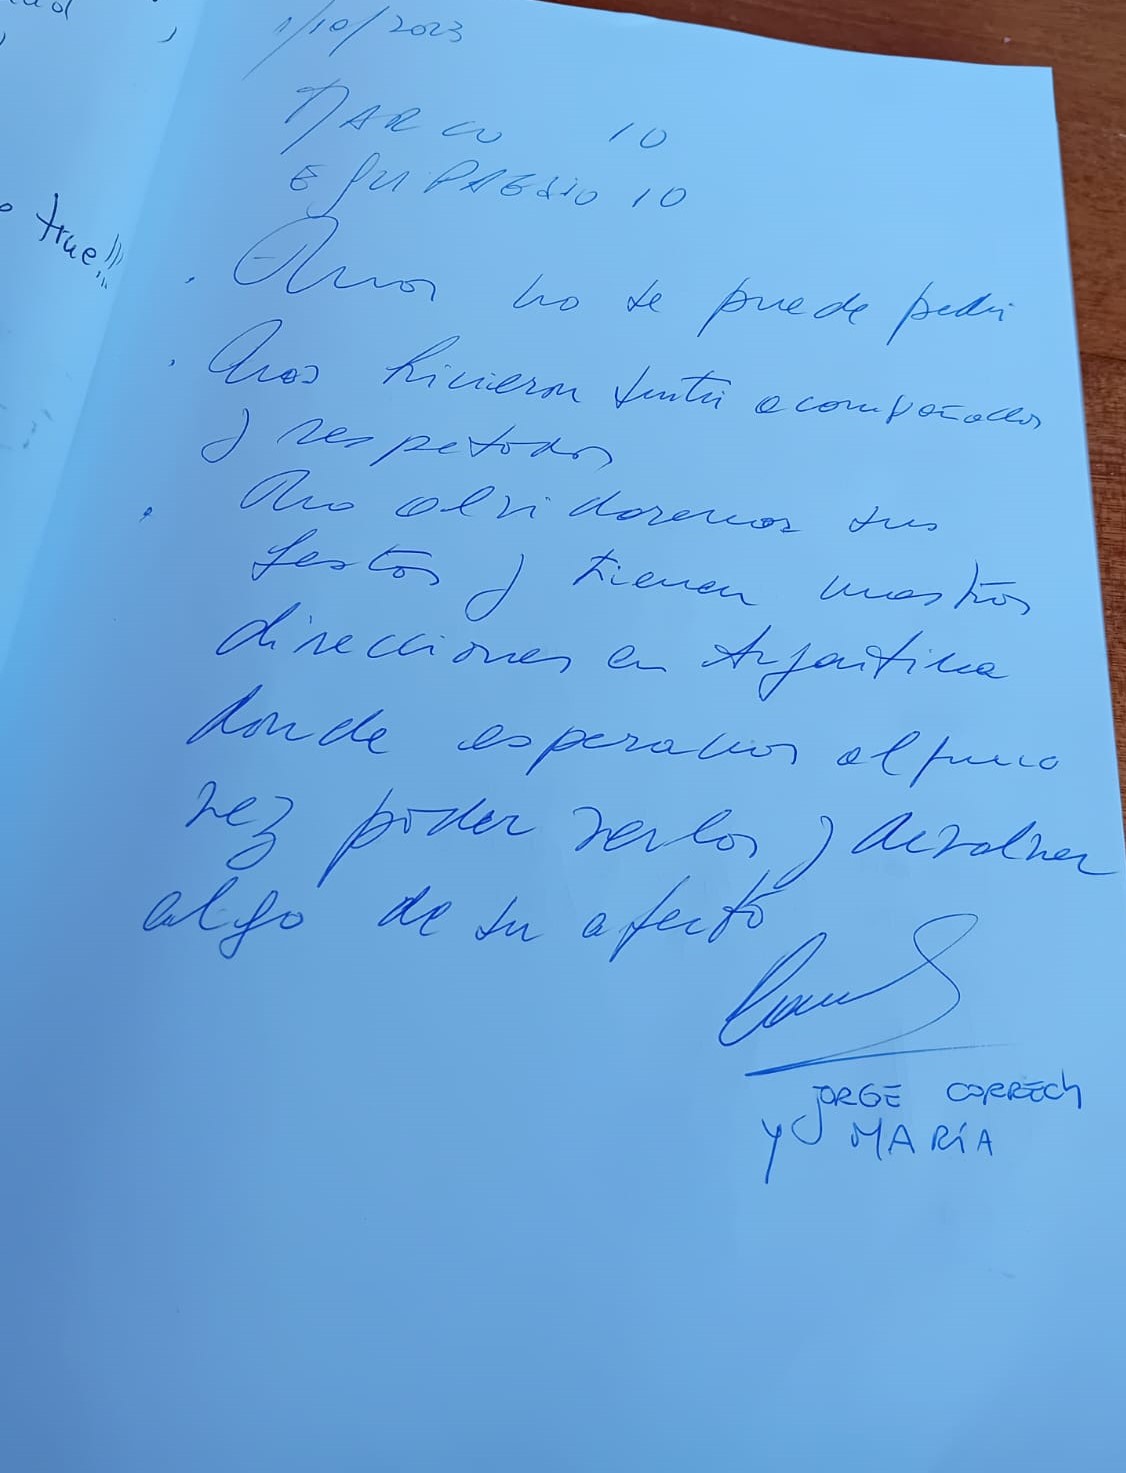 true!!!
1/10/2023
MARCO 10
EQUIPAESIO 10
. Mas no se puede pedir
. Nos hicieron sentir acompañados
y respetados
. No olvidaremos sus
gestos y tienen nuestras
direcciones en Argentina
donde esperamos alguna
vez poder verlos y devolver
algo de su afecto
JORGE CORRECH
Y MARÍA